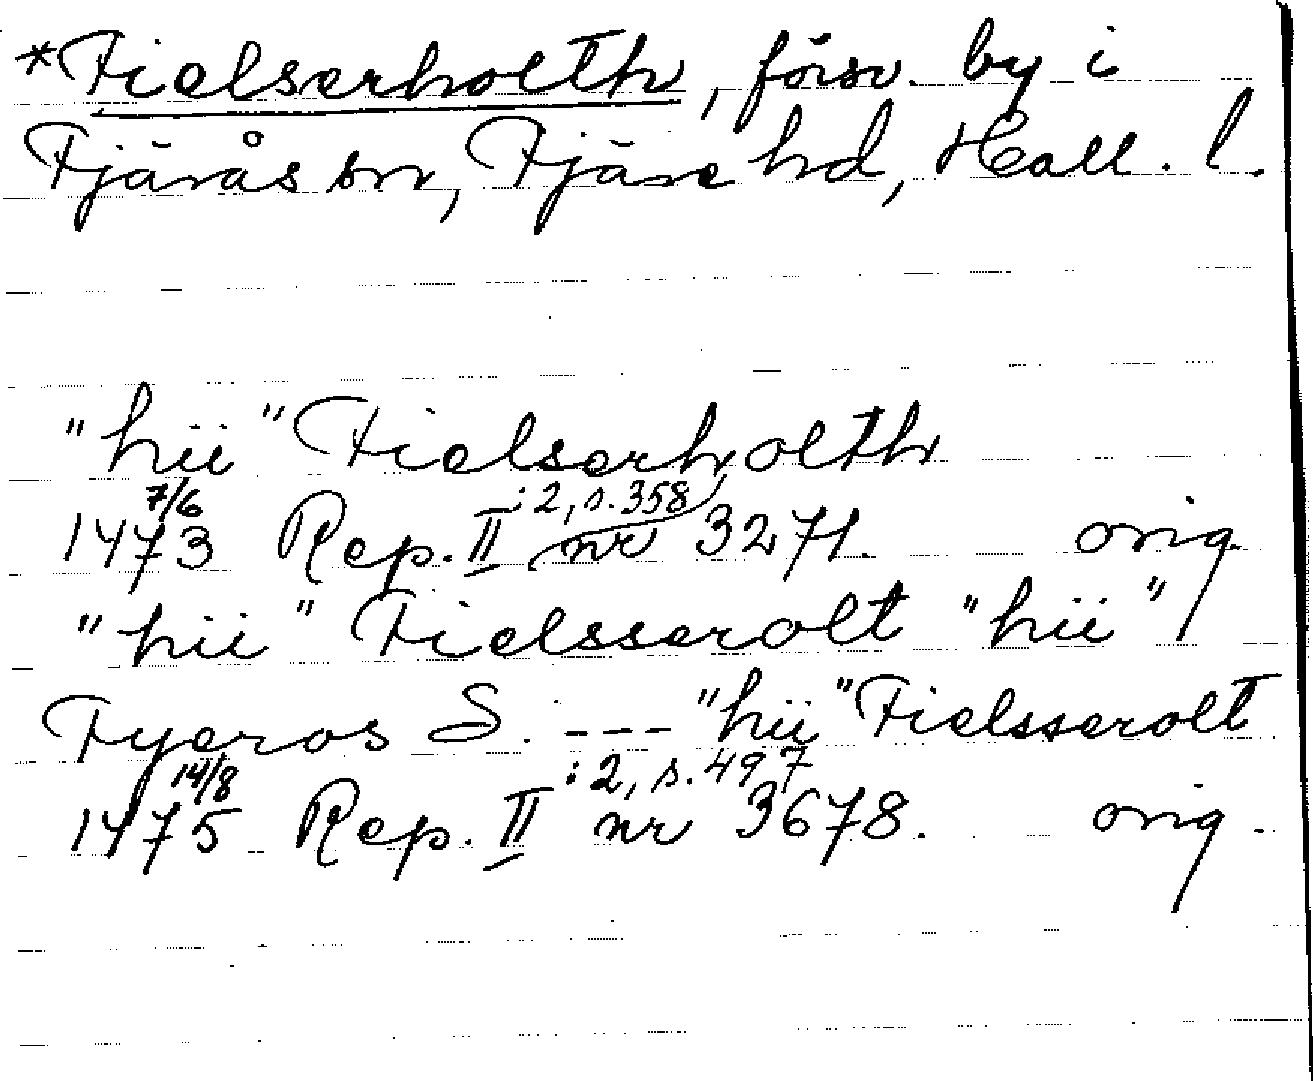 *Fielserholth, försv. by i
Fjärås sn, Fjäre hd, Hall. l.
"hii" Fielserholth
1473 7/6 Rep. II :2, s.358 (nr 3271. orig.
"hii" Fielsserolt "hii"
Fyeros S. --- "hii" Fielsserolt
1475 14/8 Rep. II :2, s.497 nr 3678. orig.